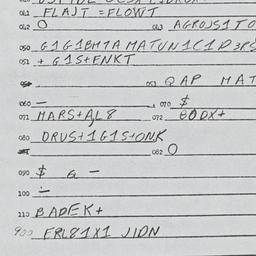 041 FLAJT = FLOWT
042 O 043 AGROJS1TO
050 G1G1BM7A MATUN1C1D3RS
051 + G1S+ENKT
053 QAP MAT
060 — 070 $
071 MARS+AL8 072 BODX+
080 DRUS+1G1S+ONK
082 O
090 $ G —
100 ÷
110 BADEK+
900 FRL81X1 JIDN